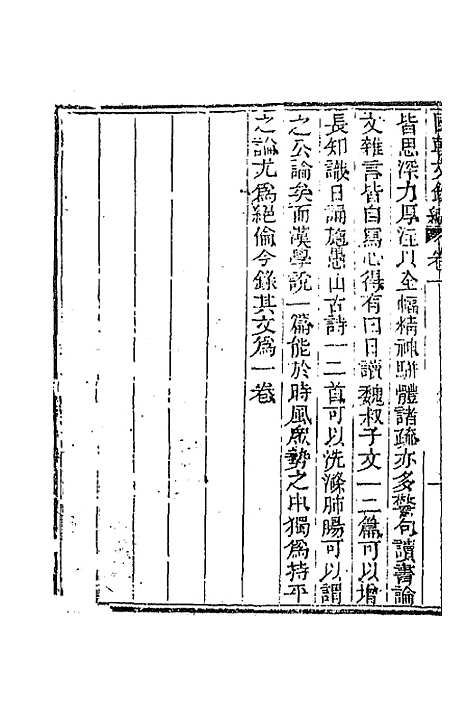 國朝文錄續編 卷一
皆思深力厚注以全幅精神駢體諸疏亦多警句讀書論
文雜言皆自寫心得有曰日讀魏叔子文一二篇可以增
長知識日誦施愚山古詩一二首可以洗滌肺腸可以謂
之公論矣而漢學說一篇能於時風眾勢之中獨為持平
之論尤為絕倫今錄其文為一卷